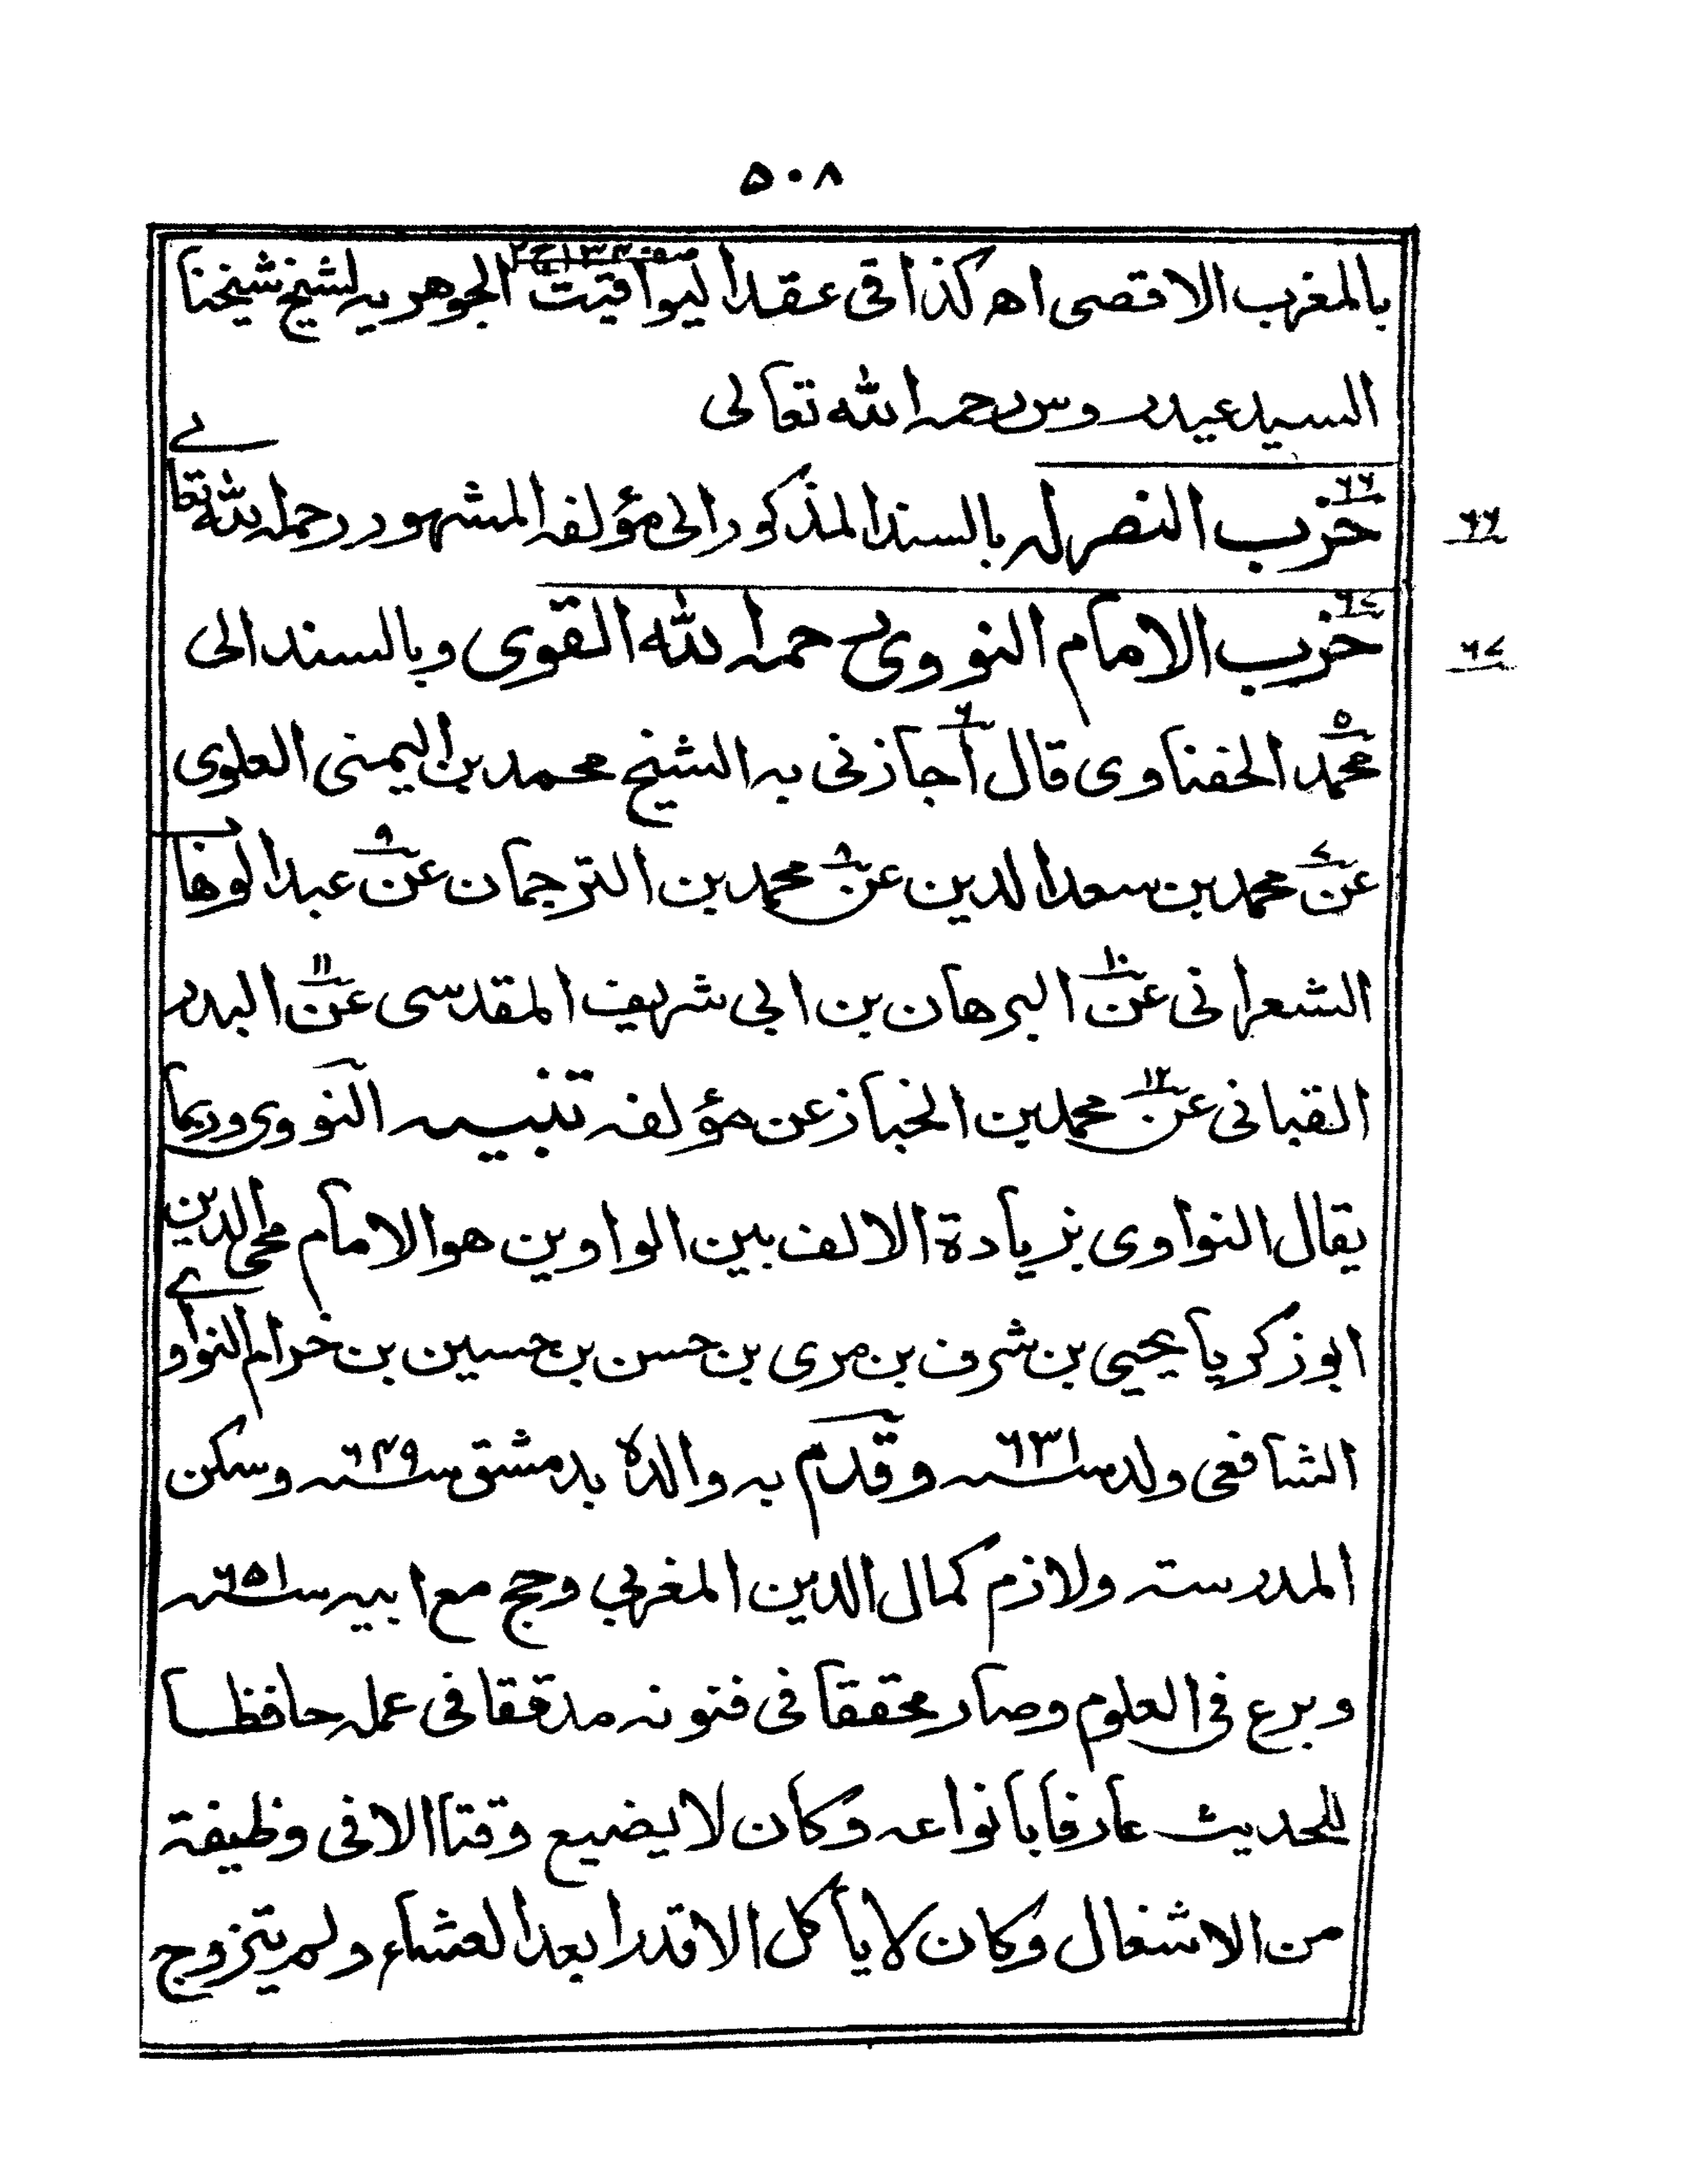 ٥٠٨
بالمغرب الاقصى اه كذا فى عقد اليواقيت الجوهريه لشيخ شيخنا
السيد عيدروس رحمه الله تعالى
٦٦ حزب النصر له بالسند المذكور الى مؤلفه المشهور رحمه الله تعالے
٦٧ حزب الامام النووى رحمه الله القوى وبالسند الى
محمد الحفناوى قال اجازنى به الشيخ محمد بن اليمنى العلوى
عن محمد بن سعد الدين عن محمد بن الترجمان عن عبد الوهاب
الشعرانى عن البرهان بن ابى شريف المقدسى عن البدر
القبانى عن محمد بن الخباز عن مؤلفه تنبيه النووى وربما
يقال النواوى بزيادة الالف بين الواوين هو الامام محى الدين
ابو زكريا يحيى بن شرف بن مرى بن حسن بن حسين بن خرام النواوے
الشافعى ولد سنه ٦٣١ وقدم به والده بدمشق سنه ٦٤٩ وسكن
المدرسته ولازم كمال الدين المغربي وحج مع ابيه سنه ٦٥١
وبرع فى العلوم وصار محققا فى فنونه مدققا فى عمله حافظا
للحديث عارفا بانواعه وكان لا يضيع وقتا الا فى وظيفة
من الاشغال وكان لا يأكل الا قدرا بعد العشاء ولم يتزوج